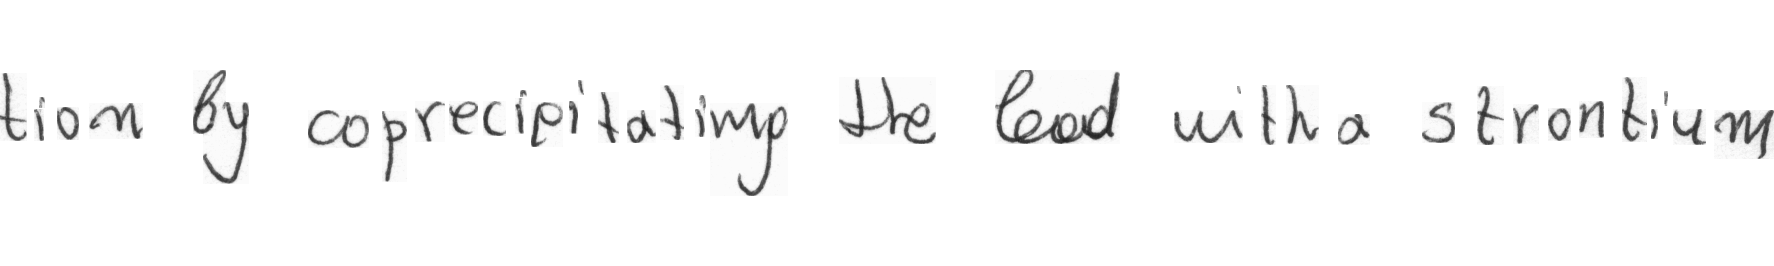 tion by coprecipitating the lead with a strontium